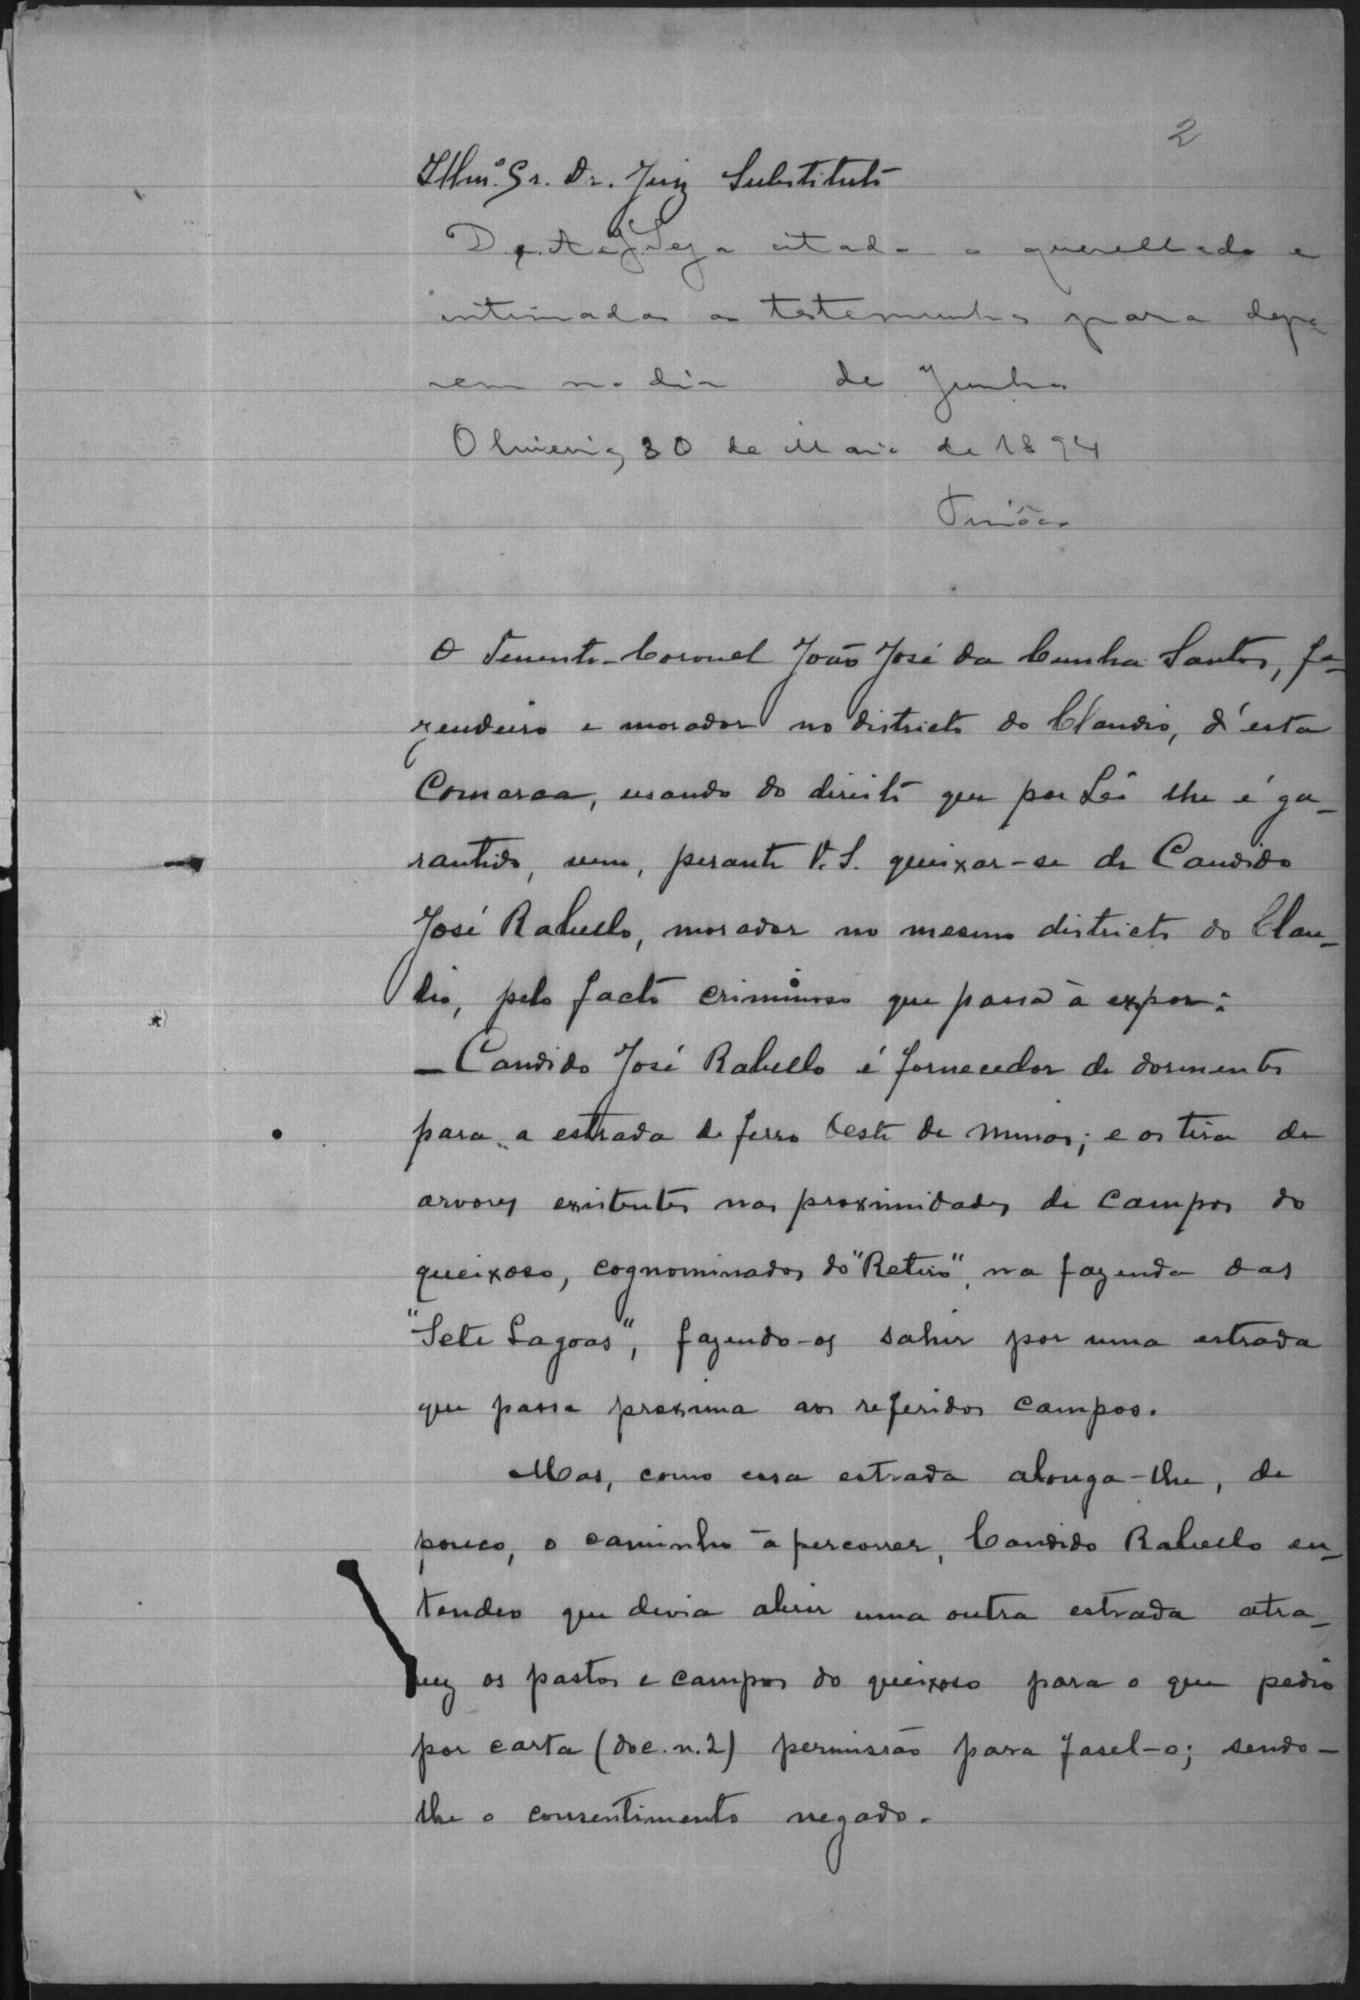 2
Illmº. Sr. Dr. Juiz Substituto
D. e A. Seja citado o querellado e
intimadas as testemunhas para depo
rem no dia de Junho
Oliveira, 30 de Maio de 1894
O Tenente-Coronel João José da Cunha Santos, fa-
zendeiro e morador no districto do Claudio, d'esta
Comarca, usando do direito que por Lei lhe é ga-
rantido, vem, perante V. S. queixar-se de Candido
José Rabello, morador no mesmo districto do Clau-
dio, pelo facto criminoso que passa à expor:
— Candido José Rabello é fornecedor de dormentes
para a estrada de ferro Oeste de Minas; e os tira de
arvores existentes nas proximidades de campos do
queixoso, cognominados do "Retiro", na fazenda das
"Sete Lagoas", fazendo-os sahir por uma estrada
que passa proxima aos referidos campos.
Mas, como essa estrada alonga-lhe, de
pouco, o caminho à percorrer, Candido Rabello en-
tendeo que devia abrir uma outra estrada atra-
vez os pastos e campos do queixoso para o que pedio
por carta (doc. n. 2) permissão para fasel-o; sendo-
lhe o consentimento negado.